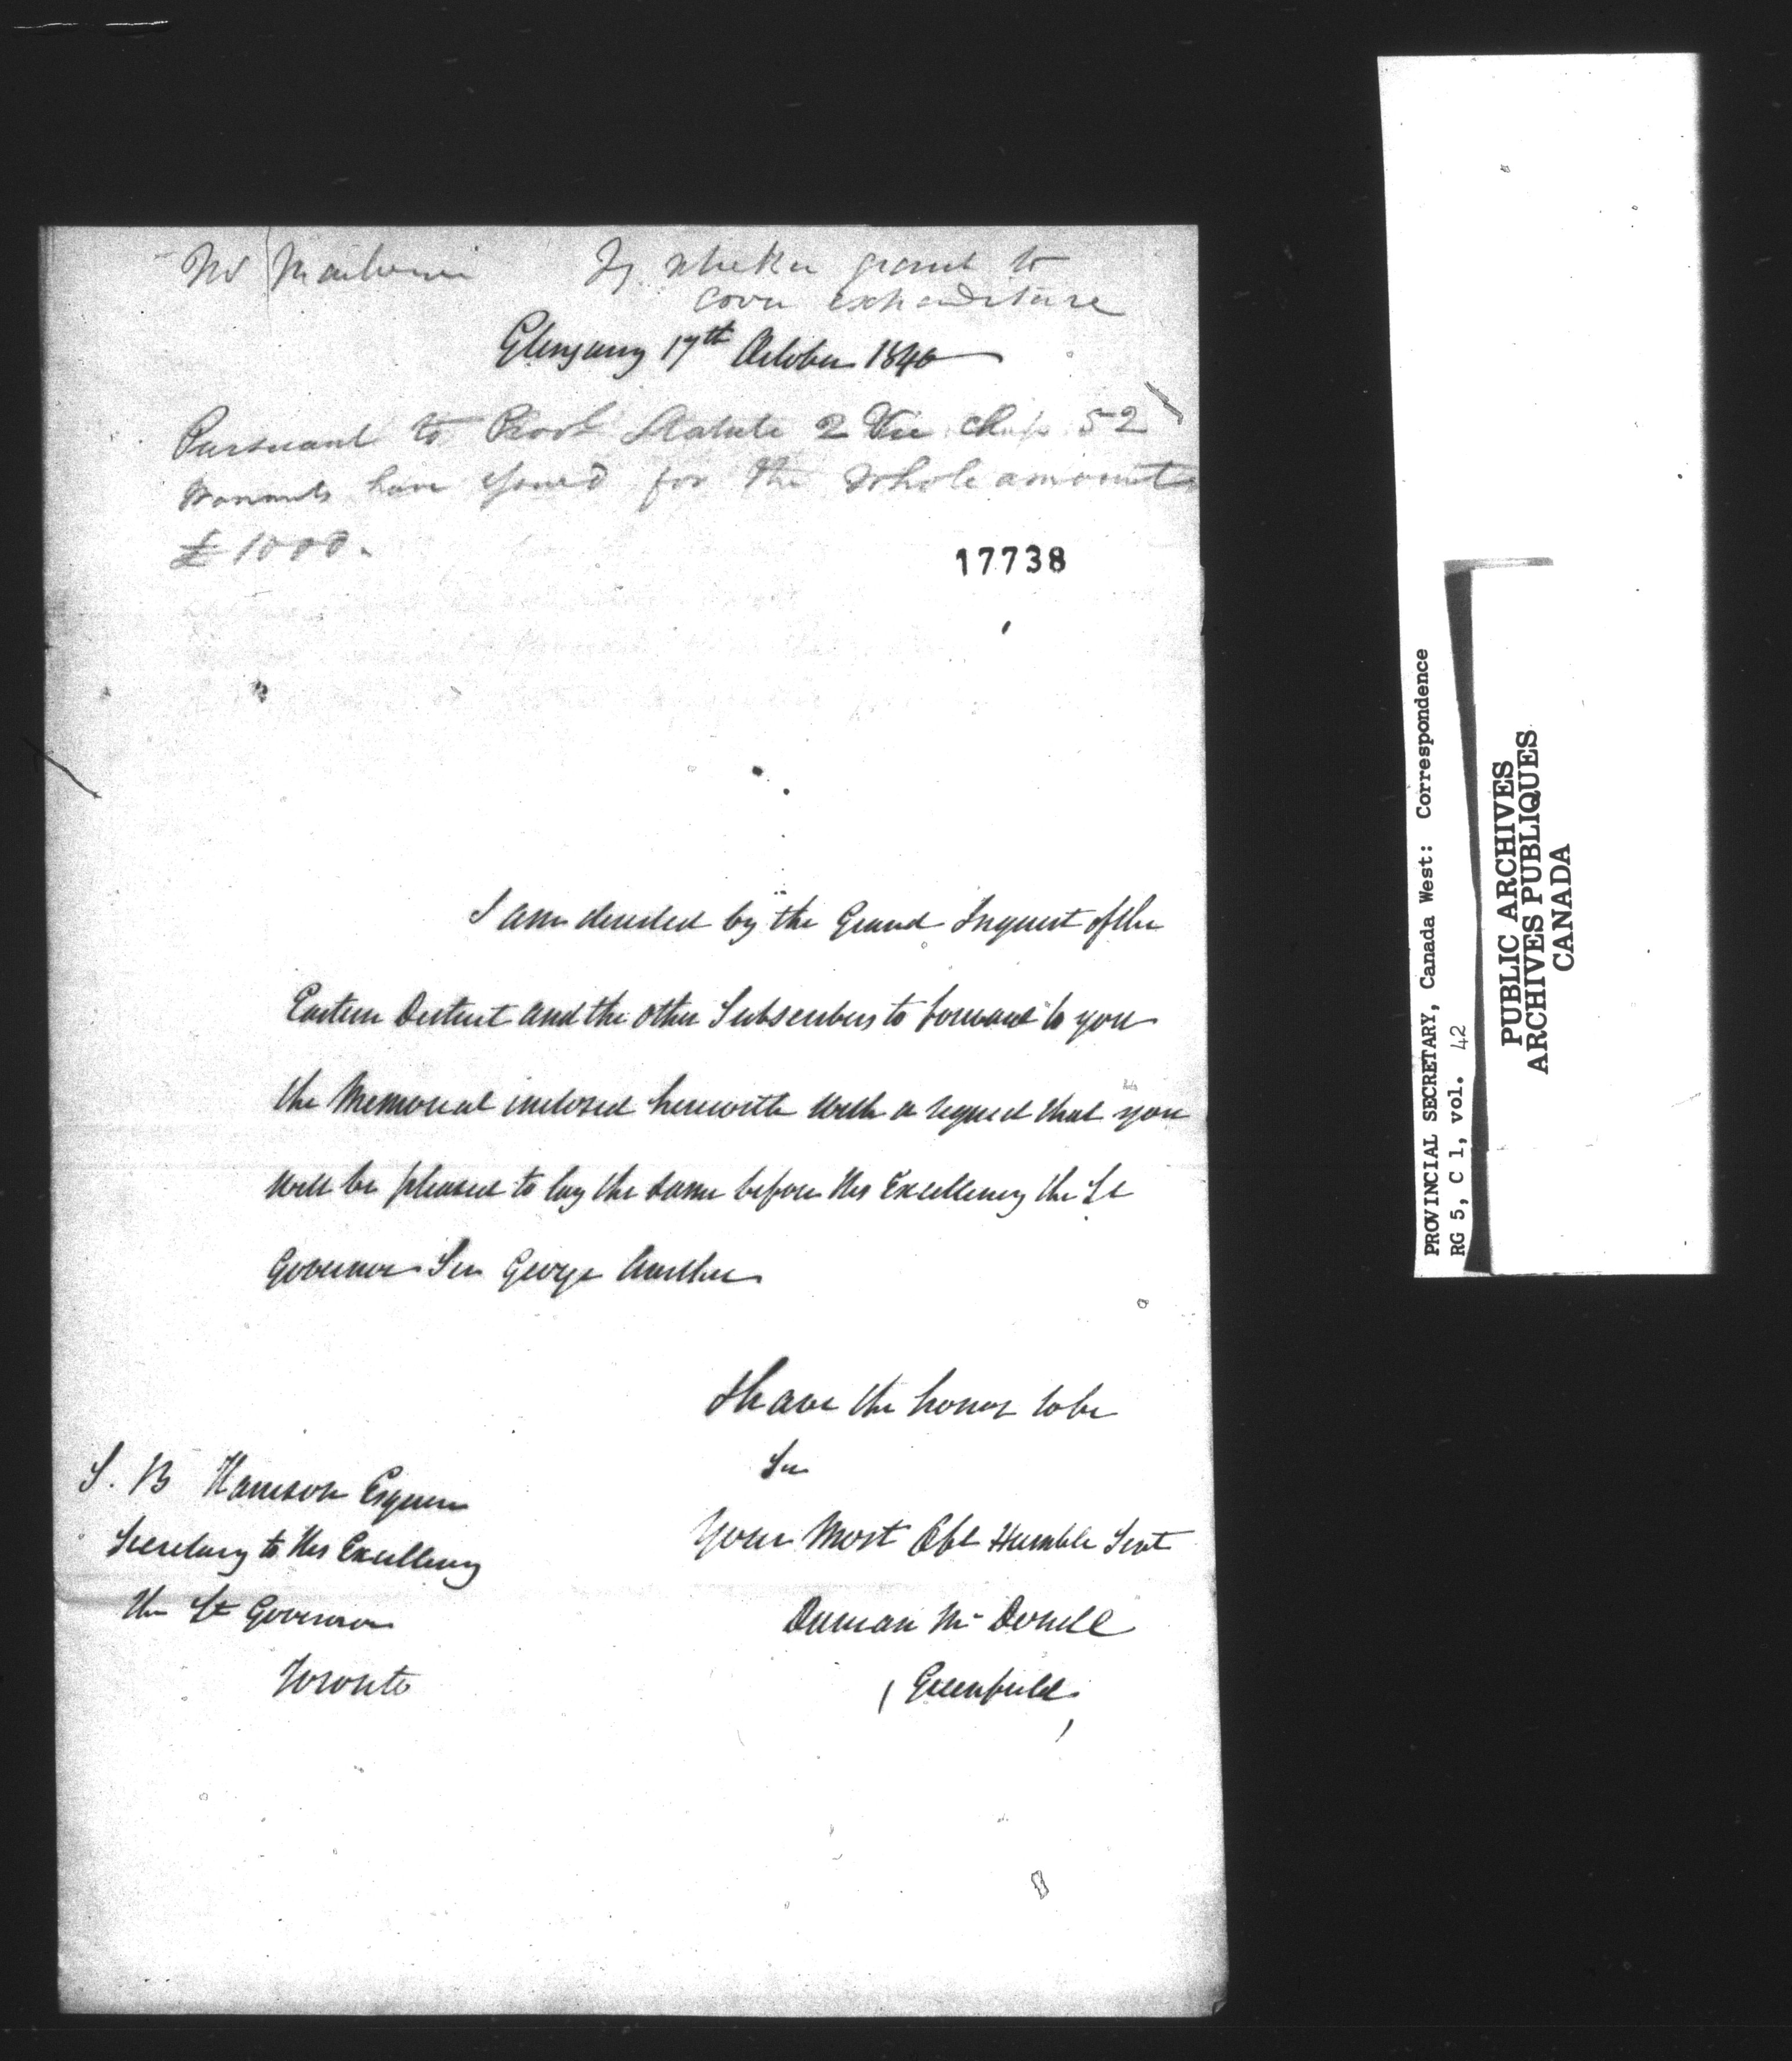 Mr
whether grant to
cover expenditure
Glengarry 17th October 1840
Pursuant to Provl Statute 2 Vic Chap 52
Warrants have issued for the whole amount
£1000.
17738
I am directed by the Grand Inquest of the
Eastern District and the other Subscribers to forward to you
the Memorial inclosed herewith with a request that you
will be pleased to lay the same before His Excellency the Lt
Governor Sir George Arthur
I have the honor to be
Sir
Your Most Obt Humble Servt
Duncan Mc Donell
(Greenfield)
S. B Harrison Esquire
Secretary to His Excellency
The Lt Governor
Toronto
PROVINCIAL SECRETARY, Canada West: Correspondence
RG 5, C 1, vol. 42
PUBLIC ARCHIVES
ARCHIVES PUBLIQUES
CANADA